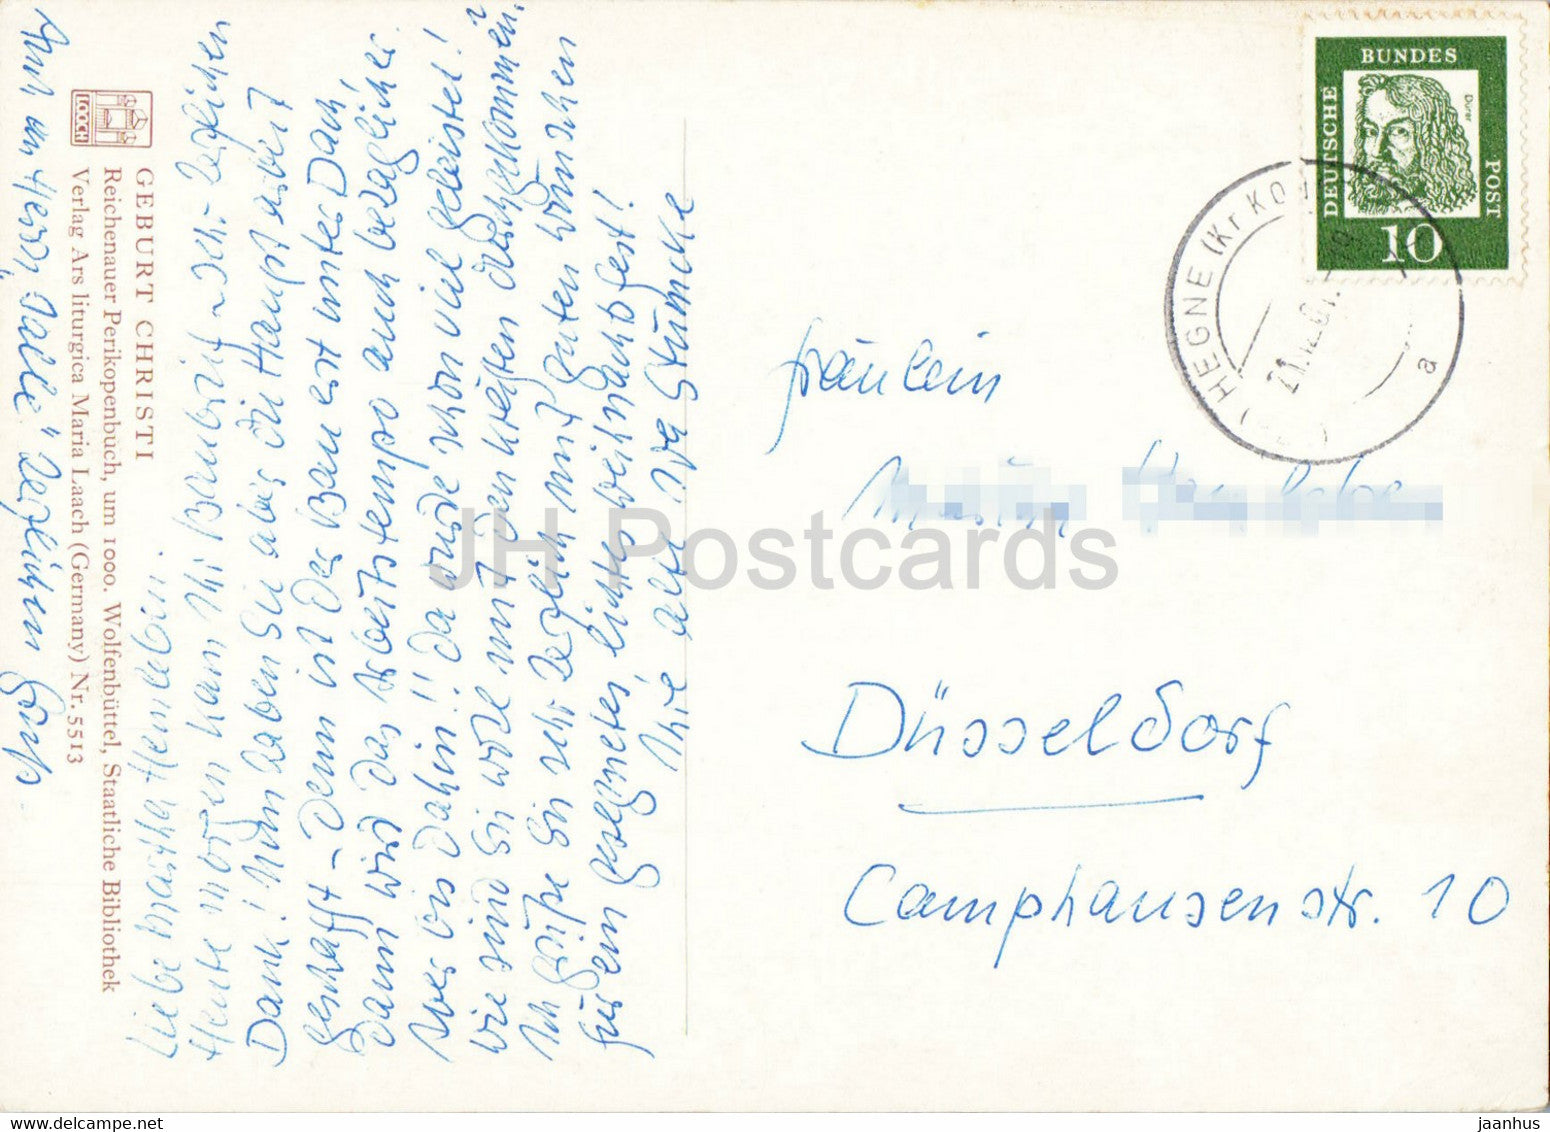 GEBURT CHRISTI
Reichenauer Perikopenbuch, um 1000. Wolfenbüttel, Staatliche Bibliothek
Verlag Ars liturgica Maria Laach (Germany) Nr. 5513
LOOCH
Liebe Martha
Heute morgen kam Ihr Baubrief - sehr herzlichen
Dank! Nun haben Sie aber die Hauptarbeit
geschafft - denn ist der Bau erst unter Dach,
dann wird das Arbeitstempo auch behaglicher.
Aber bis dahin!! Da wurde schon viel geleistet!
Wie sind Sie wohl mit den Kräften durchgekommen?
Ich grüße Sie sehr herzlich mit guten Wünschen
für ein gesegnetes, lichtes Weihnachtsfest!
Ihre alte
Auch an Herrn herzlichen Gruß.
DEUTSCHE BUNDES POST
Dürer
10
HEGNE (Kr KO
a
Fräulein
Düsseldorf
Camphausenstr. 10
JH Postcards
www.delcampe.net
jaanhus